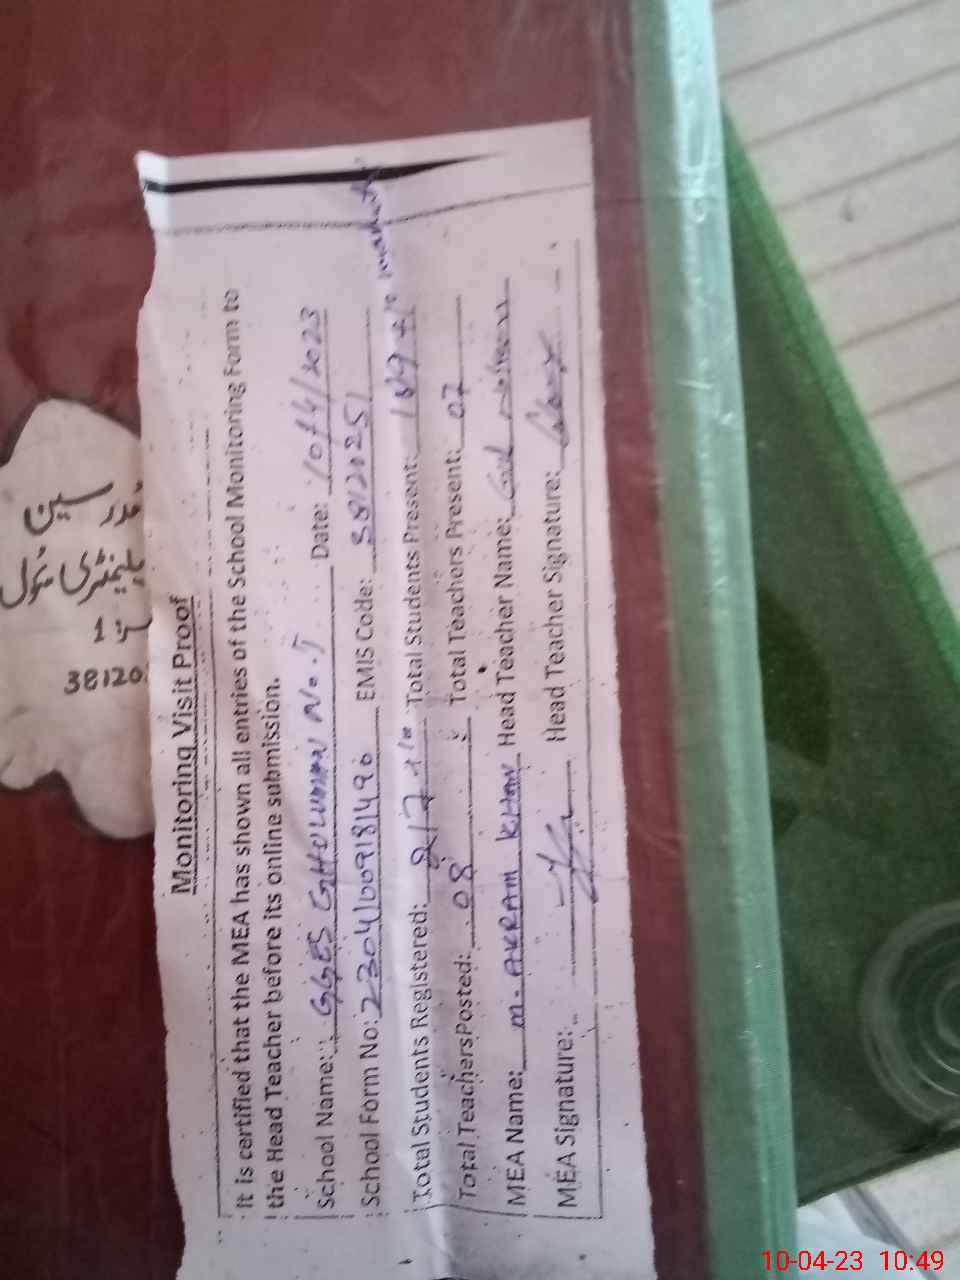 Monitoring Visit Proof
It is certified that the MEA has shown all entries of the School Monitoring Form to
the Head Teacher before its online submission.
School Name: GGES GHOLWAN No. 1 Date: 10/4/2023
School Form No: 230410098181496 EMIS Code: 38120251
Total Students Registered: 217 + 10 Total Students Present: 189 + 10
Total Teachers Posted: 08 Total Teachers Present: 07
MEA Name: M. AKRAM KHAN Head Teacher Name:
MEA Signature: Head Teacher Signature:
سکول
1
38120
10-04-23 10:49